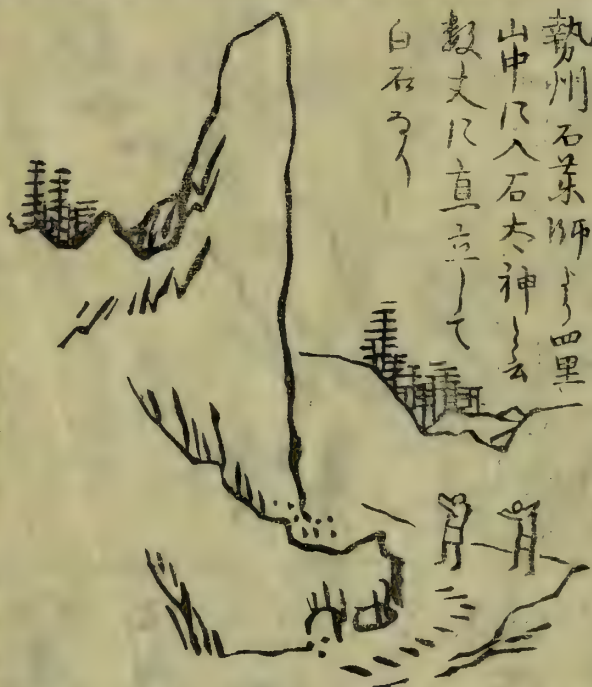 勢州石薬師より四里
山中に入石大神と云
数丈に直立して
白石なり